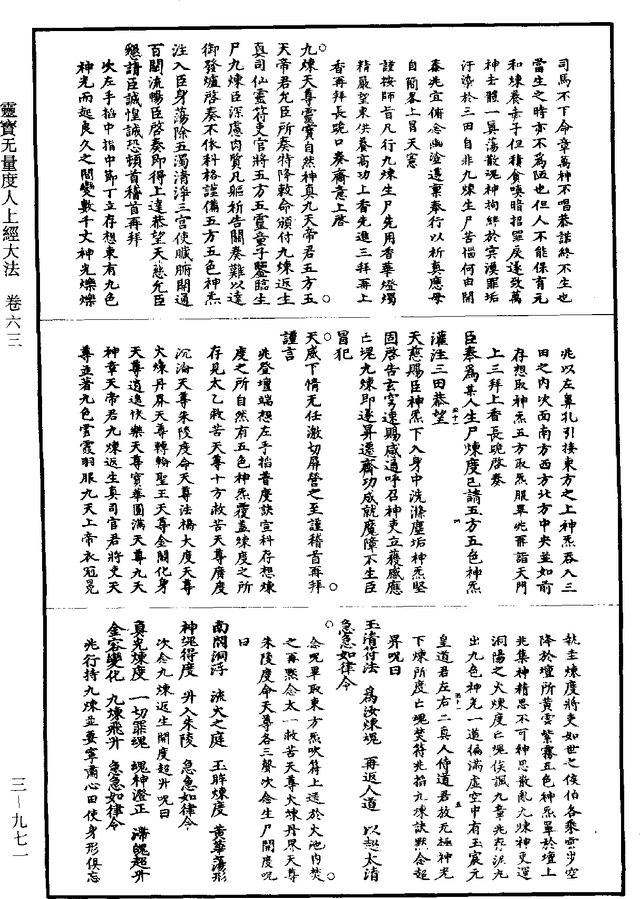 司馬不下命章萬神不唱恭諾終不生也
當生之時亦不為陋也但人不能保育元
和煉養赤子但積貪喚暗招罪戾遂致萬
神去體一真蕩散魂神拘繫於冥漠罪垢
汙染於三田自非九煉生尸苦惱何由開
泰兆宜俯念幽塗遵稟奉行以祈真應毋
自簡畧上昌天憲
謹按師旨凡行九煉生尸先用香華燈燭
精嚴望東供養高功上香先進三拜再上
香再拜長跪口奏齋意上啓
九煉天尊靈寶自然神真九天帝君五方五
天帝君允臣所奏特降敕命頒付九煉返生
真司仙靈符吏官將五方五靈童子鑒臨生
尸九煉臣深慮肉質凡軀祈告關奏難以達
御發爐啓奏不依科格謹備五方五色神炁
注入臣身蕩除五濁清淨三宮使臟腑開通
百關流暢臣啓奏即得上達恭望天慈允臣
懇請臣誠惶誠恐頓首稽首再拜
次左手掐中指中節丁立存想東有九色
神光而起良久之間變數千丈神光爍爍
兆以左鼻孔引接東方之上神炁吞入三
田之内次面南方西方北方中央並如前
存想取神炁五方取炁服畢兆再詣天門
上三拜上香長跪啓奏
臣奉為某人生尸煉度已請五方五色神炁
灌注三田恭望
天慈賜臣神炁下入身中洗滌塵垢神炁堅
固啓告玄穹速賜感通呼召神吏立獲感應
亡魂九煉即遂昇遷齋功成就魔障不生臣
冒犯
天威下情无任激切屏營之至謹稽首再拜
謹言
兆登壇端想左手掐普度訣宣科存想煉
度之所自然有五色神炁覆蓋煉度之所
存見太乙救苦天尊十方救苦天尊廣度
沉淪天尊朱陵度命天尊法橋大度天尊
火煉丹界天尊轉輪聖王天尊金闕化身
天尊逍遙快樂天尊寶華圓滿天尊九天
神章天帝君九煉返生真司官君將吏天
尊並著九色雲霞羽服九天上帝衣冠冕
執圭煉度將吏如世之侯伯各乘雲步空
降於壇所黄雲紫霧五色神炁罩於壇上
兆集神精思不可神思散亂九煉神吏運
洞陽之火煉度亡魂俟諷九章兆存泥九
出九色神光一道徧滿虛空中有玉宸元
皇道君左右二真人侍道君放无極神光
下煉所度亡魂焚符兆掐九煉訣默念超
昇呪曰
玉清符法 為汝煉魂 再返人道 以超太清
急急如律令
念呪畢取東方炁吹符上送於火池内焚
之再默念太一救苦天尊火煉丹界天尊
朱陵度命天尊各三聲次念生尸開度呪
曰
南閻洞浮 流火之庭 玉眸煉度 黄華蕩形
神魂得度 升入朱陵 急急如律令
次念九煉返生開度超升呪曰
真光煉度 一切罪魂 魂神澄正 滯魄超升
金容變化 九煉飛升 急急如律令
兆行持九煉並要寧肅心田使身形俱忘
靈寶无量度人上經大法 卷六三
三—九七一